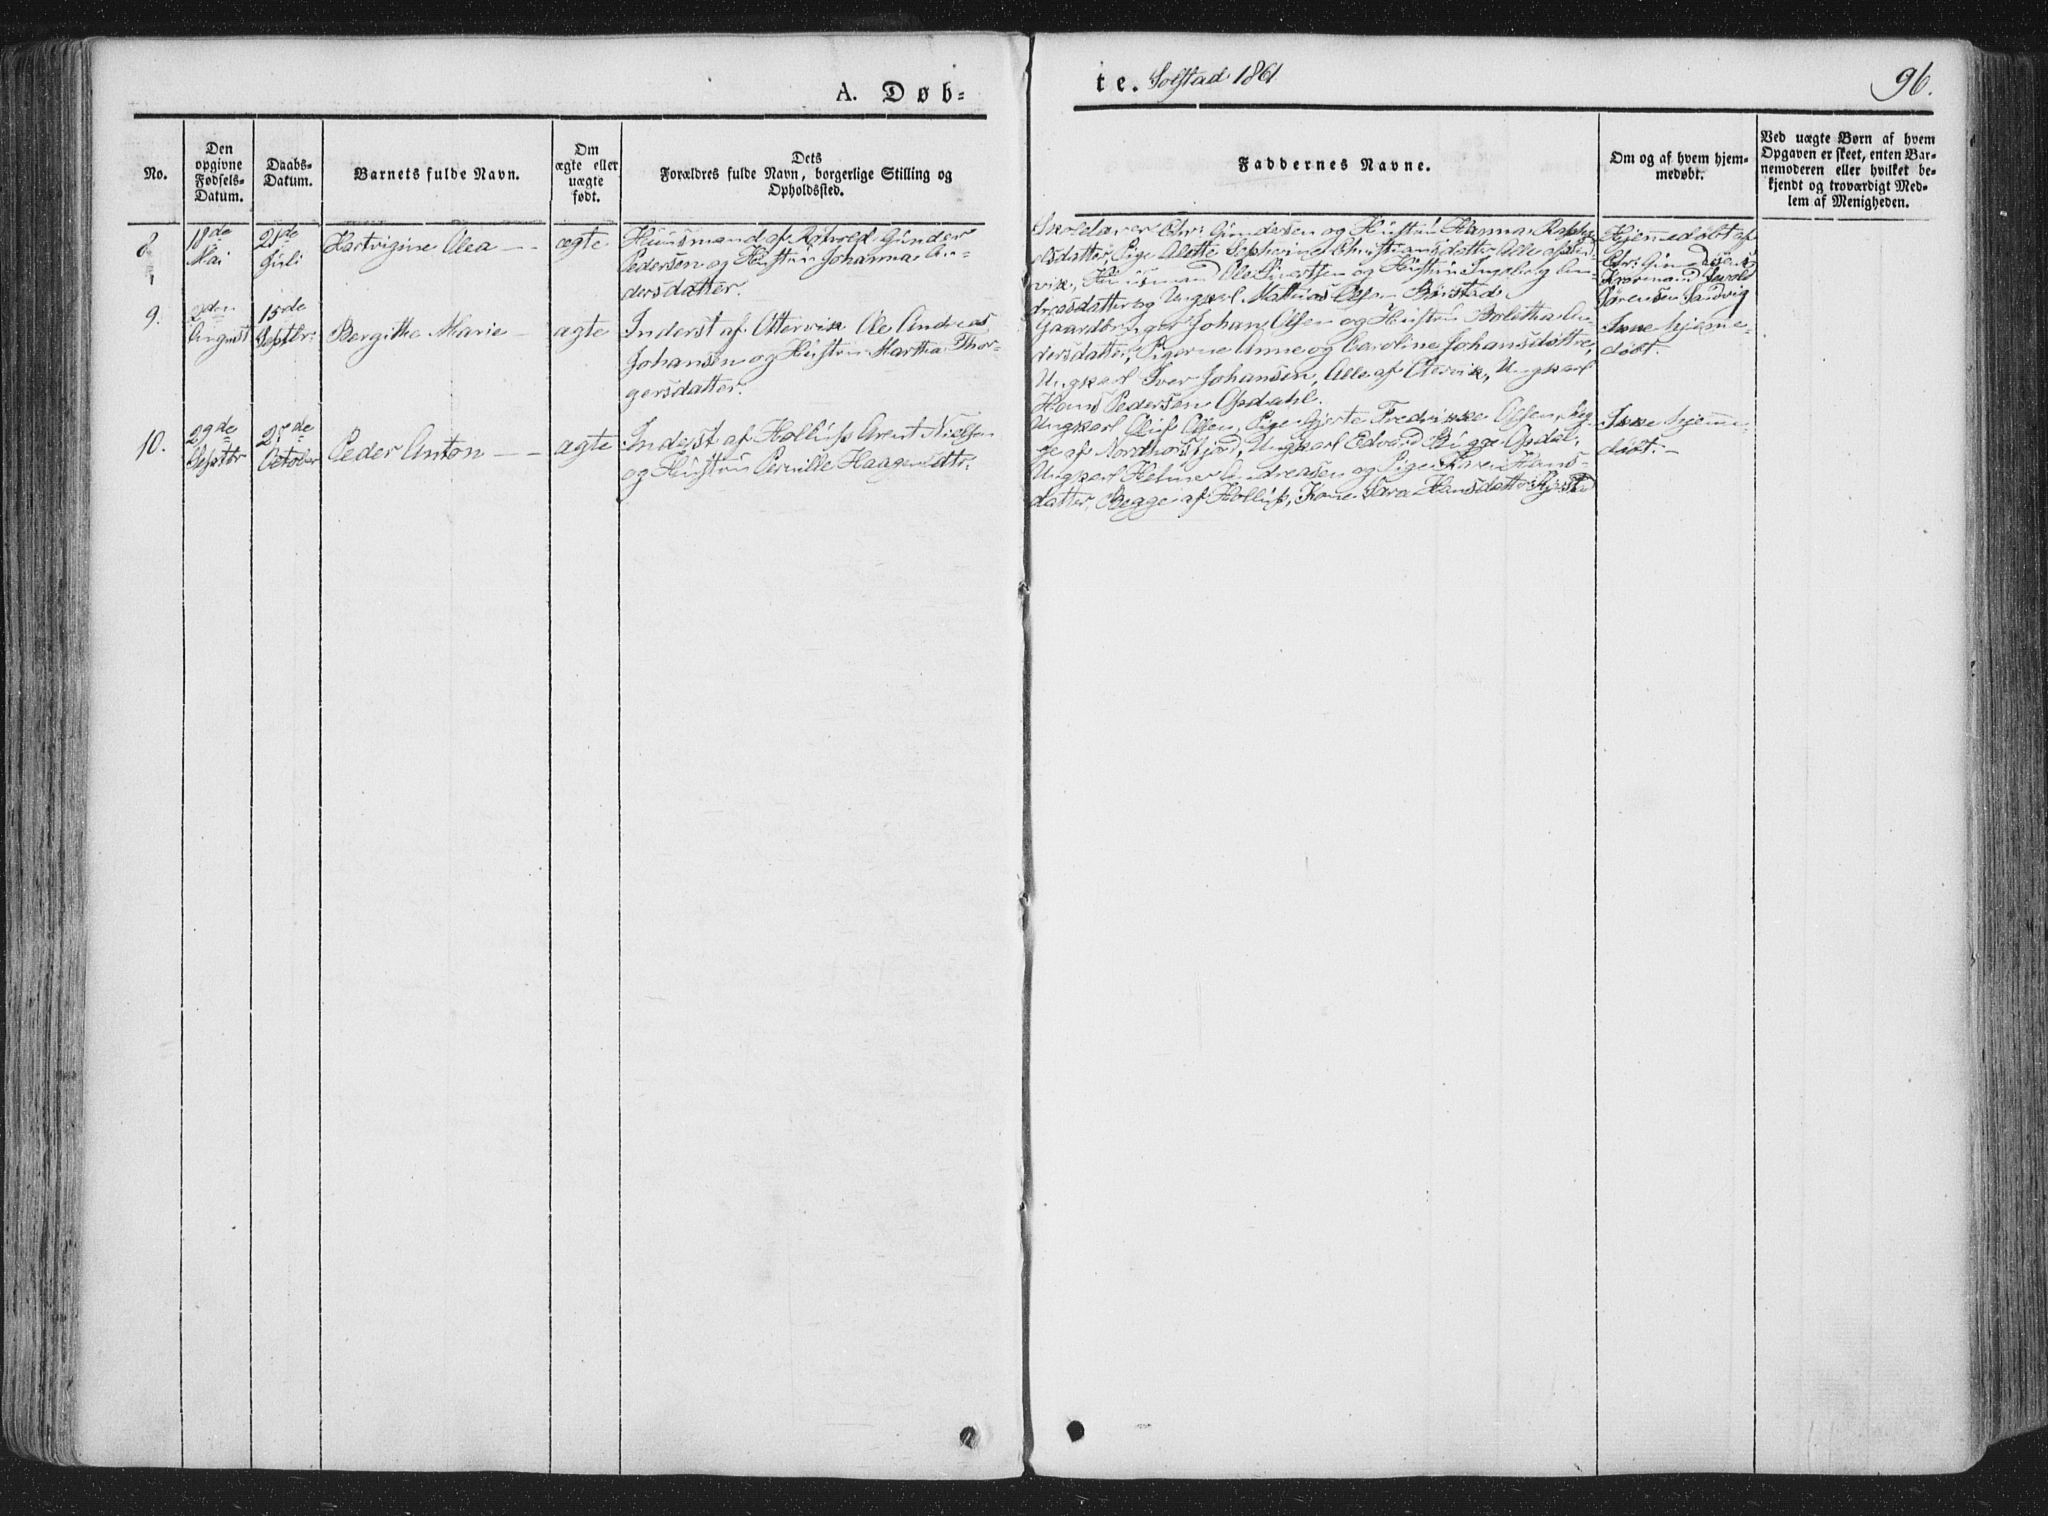 A. Døb-
te. Solstad 1861
96.
No.
Den opgivne Fødsels-Datum.
Daabs-Datum.
Barnets fulde Navn.
Om ægte eller uægte født.
Dets Forældres fulde Navn, borgerlige Stilling og Opholdssted.
Faddernes Navne.
Om og af hvem hjemmedøbt.
Ved uægte Børn af hvem
Opgaven er skeet, enten Bar-
nemoderen eller hvilket be-
kjendt og troværdigt Med-
lem af Menigheden.
8.
18de Mai
21de Juli
Hartvigine Olea
ægte
Huusmand af Gunder
Pedersen og Hustru Johanna An-
dersdatter.
Chr: Gundersen og Hustru Hanna
datter, Pige Alette Sephrine Christiansdatter Alle af Sand-
vik, Huusmand Ole Sivertsen og Hustru Ingeborg An-
dreasdatter og Ungkarl Mathias Olsen
Hjemmedøbt af
Chr: Gundersen
Sørensen Sandvig
9.
2den August
15de Septbr:
Bergithe Marie
ægte
Inderst af Ottervik Ole Andreas
Johansen og Hustru Martha Thor-
gersdatter.
Gaardbruger Johan Olsen og Hustru Boletha An-
dersdatter, Pigerne Anne og Caroline Johansdøttre,
Ungkarl Iver Johansen, Alle af Ottervik, Ungkarl
Hans Pedersen Opdahl.
Ikke hjemme-
døbt.
10.
29de Septbr
27de October
Peder Anton
ægte
Inderst af Hollup Arent Nielsen
og Hustru Pernille Haagensdtr.
Ungkarl Oluf Olsen, Pige Gjerte Fredrikke Olsen, Beg-
ge af Nordhorsfjord, Ungkarl Edvard Bugge Opdal,
Ungkarl Helmer Andreasen og Pige Karen Hans-
datter, Begge af Hollup, Kone Sara Hansdatter
Ikke hjemme
døbt.